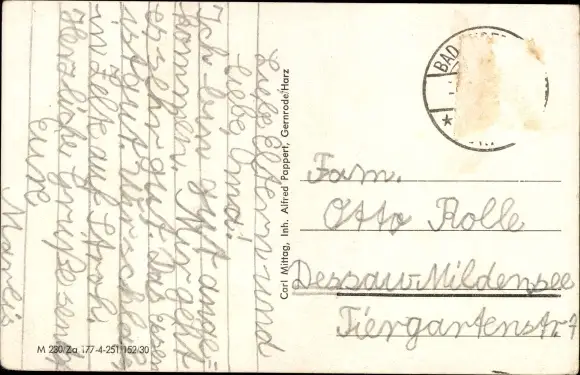 Liebe Eltern und
liebe Oma!
Ich bin gut ange=
kommen. Mir geht
es sehr gut. Das Essen
ist gut. Wir schlafen
in Zelte auf Stroh.
Herzliche Grüße sendet
Eure
Marlis
Carl Mittag, Inh. Alfred Pappert, Gernrode/Harz
BAD
Fam.
Otto Rolle
Dessau-Mildensee
Tiergartenstr. 7
M 230/Za 177-4-251 152 30